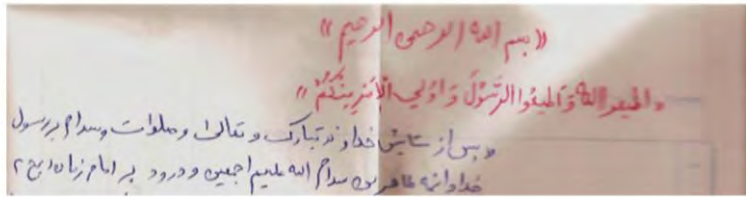 «بسم الله الرحمن الرحیم»
«اطیعوا الله وَ اَطیعُوا الرَّسُولَ وَ اُولِي الْأَمْرِ مِنْکُمْ»
«پس از ستایش خداوند تبارک و تعالی و صلوات و سلام بر رسول
خدا و ائمه طاهرین سلام الله علیهم اجمعین و درود بر امام زمان (عج)